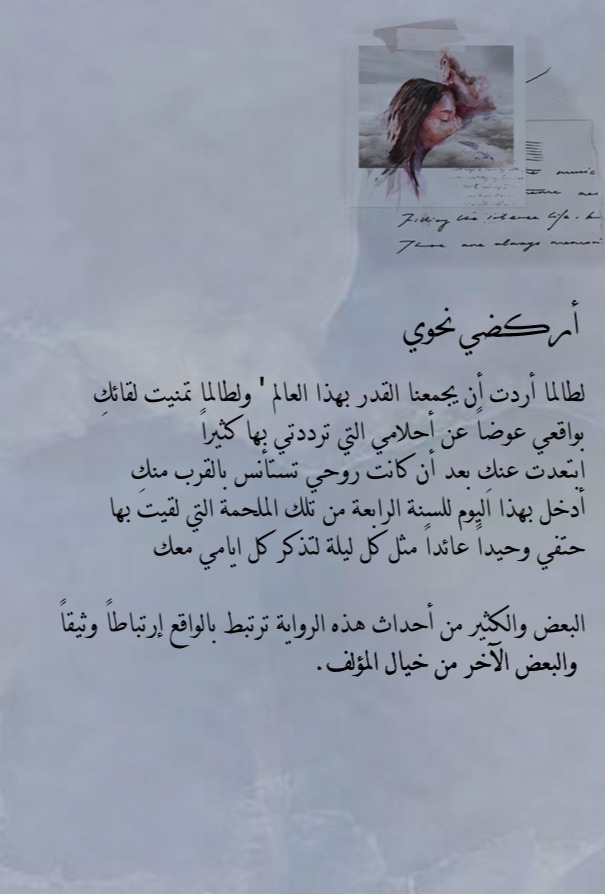 music
are
Filling the intense life.
There are always
أركضي نحوي
لطالما أردت أن يجمعنا القدر بهذا العالم ' ولطالما تمنيت لقائكِ
بواقعي عوضاً عن أحلامي التي ترددتي بها كثيراً
ابتعدت عنكِ بعد أن كانت روحي تستأنس بالقرب منكِ
أدخل بهذا اليوم للسنة الرابعة من تلك الملحمة التي لقيت بها
حتفي وحيداً عائداً مثل كل ليلة لتذكر كل ايامي معك
البعض والكثير من أحداث هذه الرواية ترتبط بالواقع إرتباطاً وثيقاً
والبعض الآخر من خيال المؤلف .